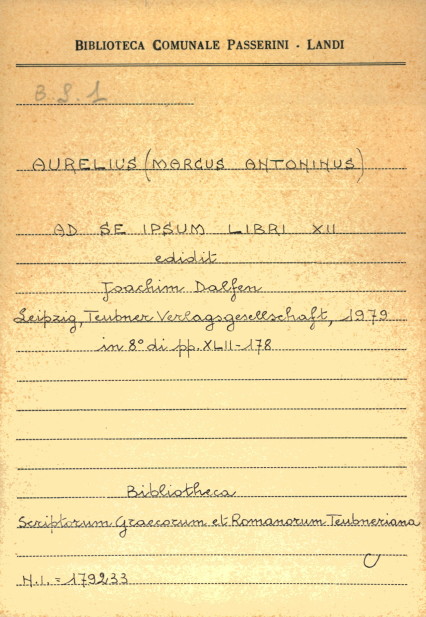 BIBLIOTECA COMUNALE PASSERINI - LANDI
B. S. 1
AURELIUS (MARCUS ANTONINUS)
AD SE IPSUM LIBRI XII
edidit
Joachim Dalfen
Leipzig, Teubner Verlagsgesellschaft, 1979
in 8° di pp. XLII-178
Bibliotheca
Scriptorum Graecorum et Romanorum Teubneriana
C
N.I. = 179233